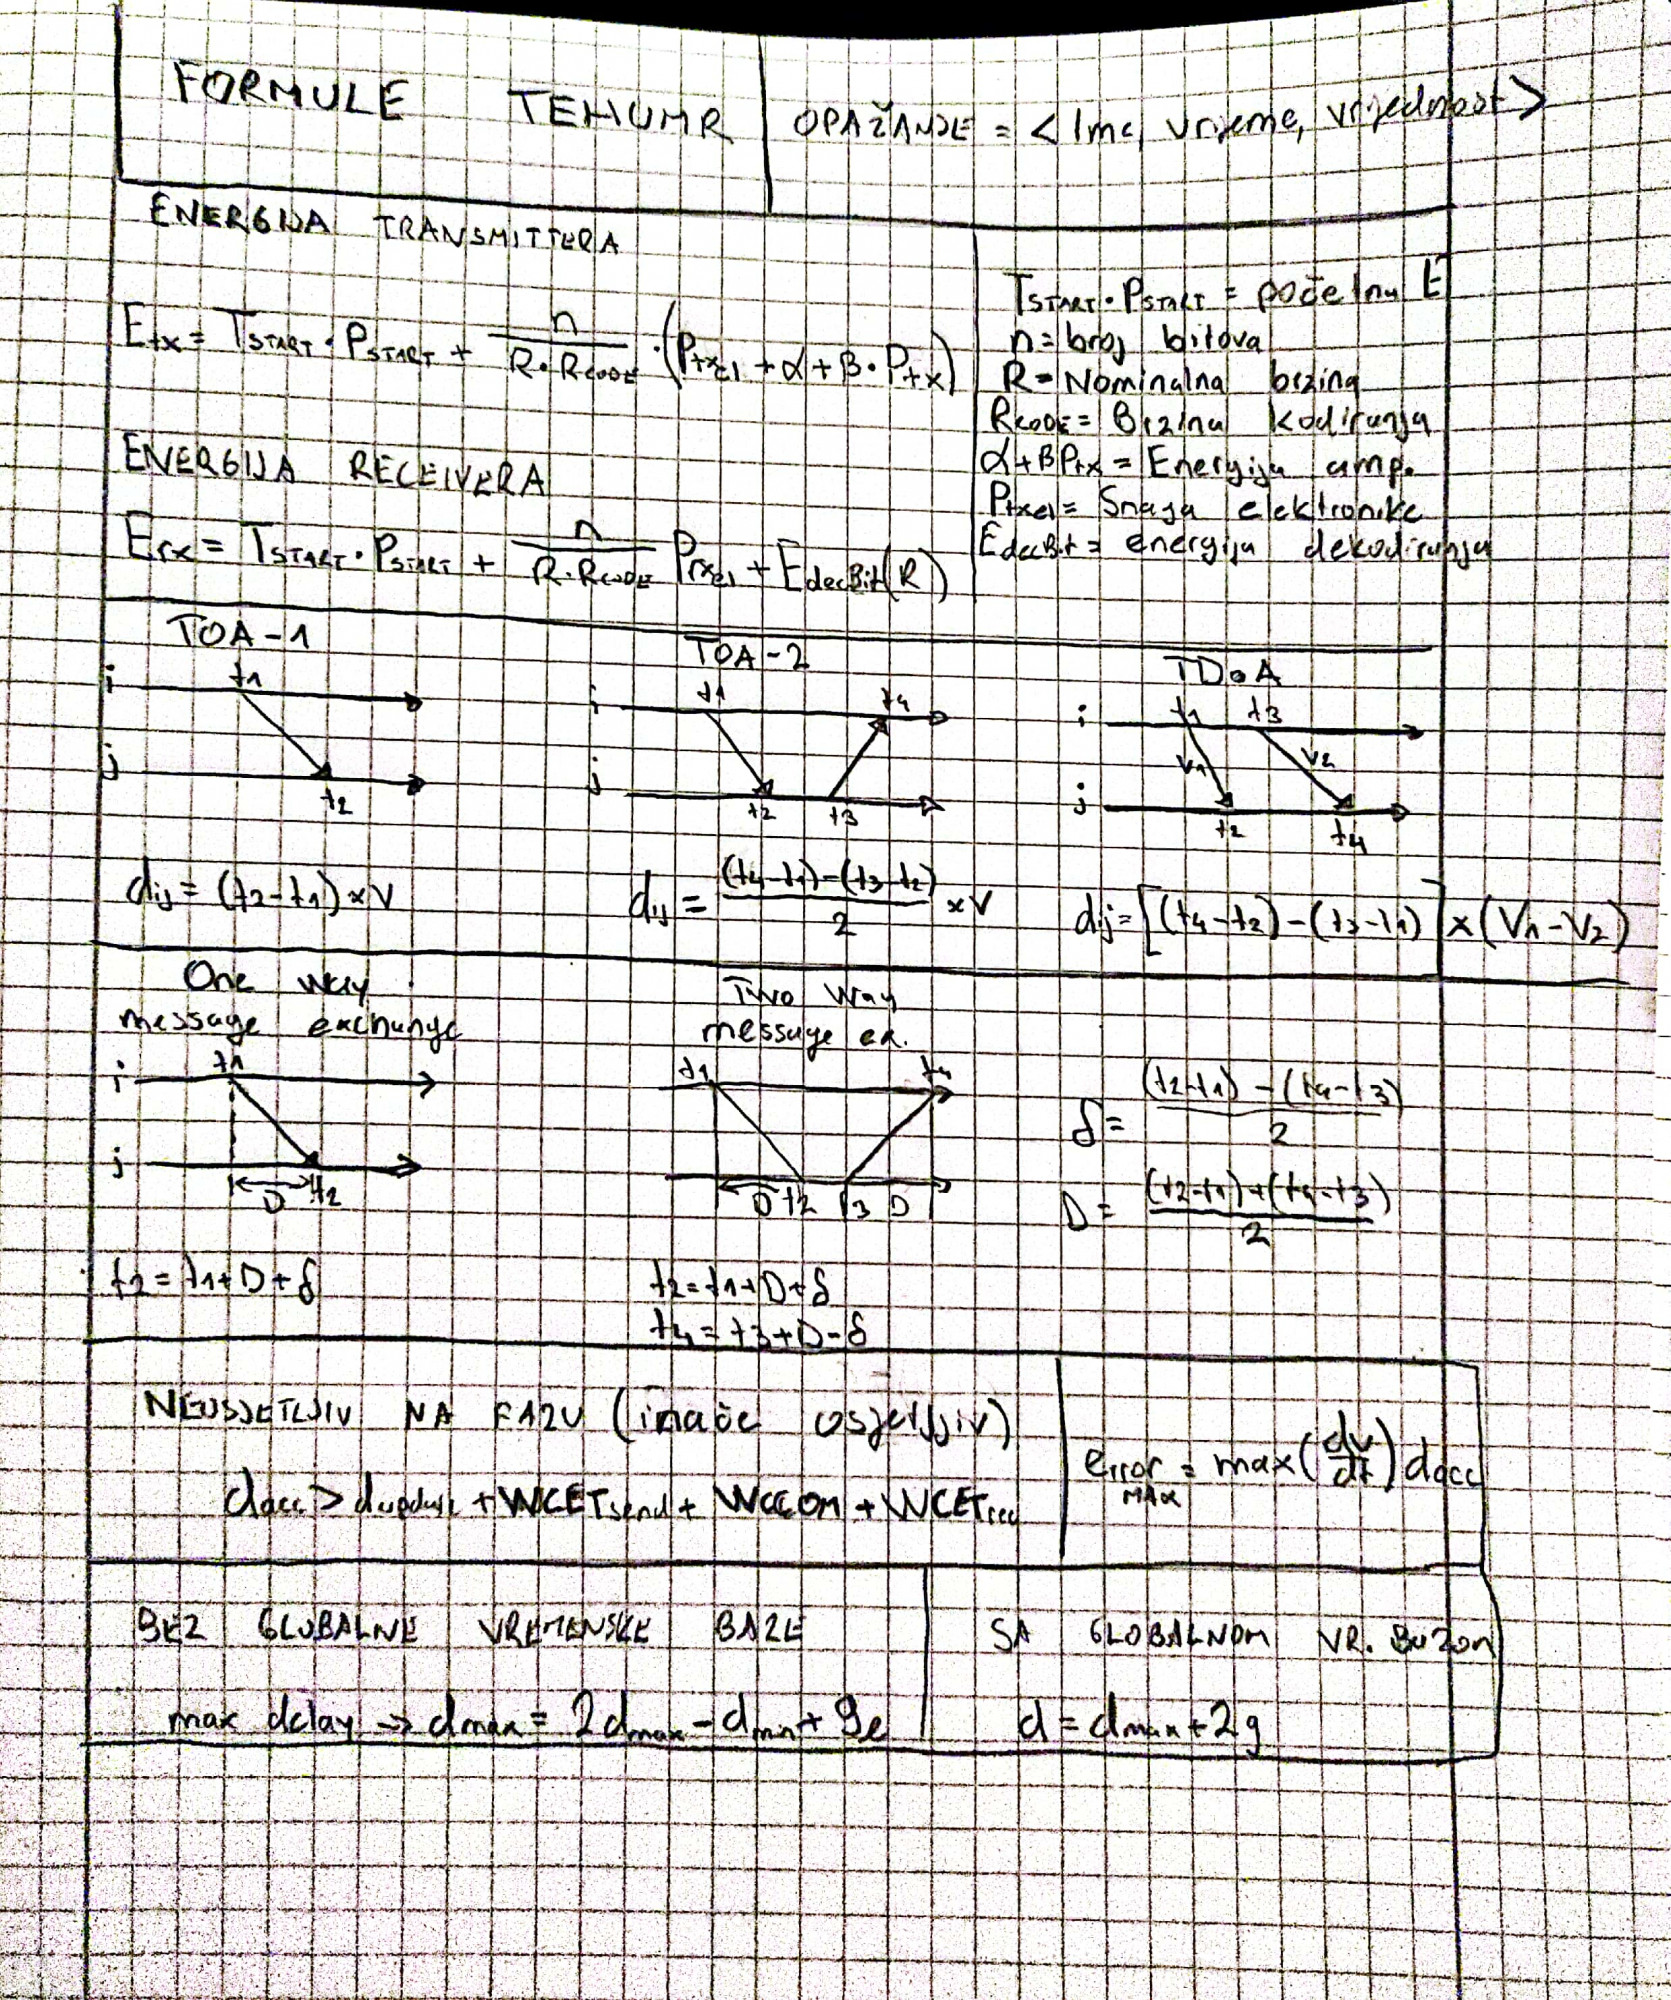 FORMULE TEHUMR
OPAŽANJE = < Ime, vrijeme, vrijednost >
ENERGIJA TRANSMITTERA
Etx = TSTART · PSTART + n / (R · RCODE) · (Ptxel + α + β · Ptx)
TSTART · PSTART = početna E
n = broj bitova
R = Nominalna brzina
RCODE = Brzina kodiranja
α + βPtx = Energija amp.
Ptxel = Snaga elektronike
EdecBit = energija dekodiranja
ENERGIJA RECEIVERA
Erx = TSTART · PSTART + n / (R · RCODE) Prxel + EdecBit(R)
TOA-1
i t1
j t2
dij = (t2 - t1) × V
TOA-2
i t1 t4
j t2 t3
dij = ((t4 - t1) - (t3 - t2)) / 2 × V
TDoA
i t1 t3
V1 V2
j t2 t4
dij = [(t4 - t2) - (t3 - t1)] × (V1 - V2)
One way
message exchange
i t1
j D t2
t2 = t1 + D + δ
Two Way
message ex.
t1 t4
D t2 t3 D
t2 = t1 + D + δ
t4 = t3 + D - δ
δ = ((t2 - t1) - (t4 - t3)) / 2
D = ((t2 - t1) + (t4 - t3)) / 2
NEOSJETLJIV NA FAZU (inače osjetljiv)
dacc > dupdate + WCETsend + WCCOM + WCETrec
errorMAX = max(dv/dt) dacc
BEZ GLOBALNE VREMENSKE BAZE
max delay → dmax = 2dmax - dmin + ge
SA GLOBALNOM VR. BaZom
d = dmax + 2g